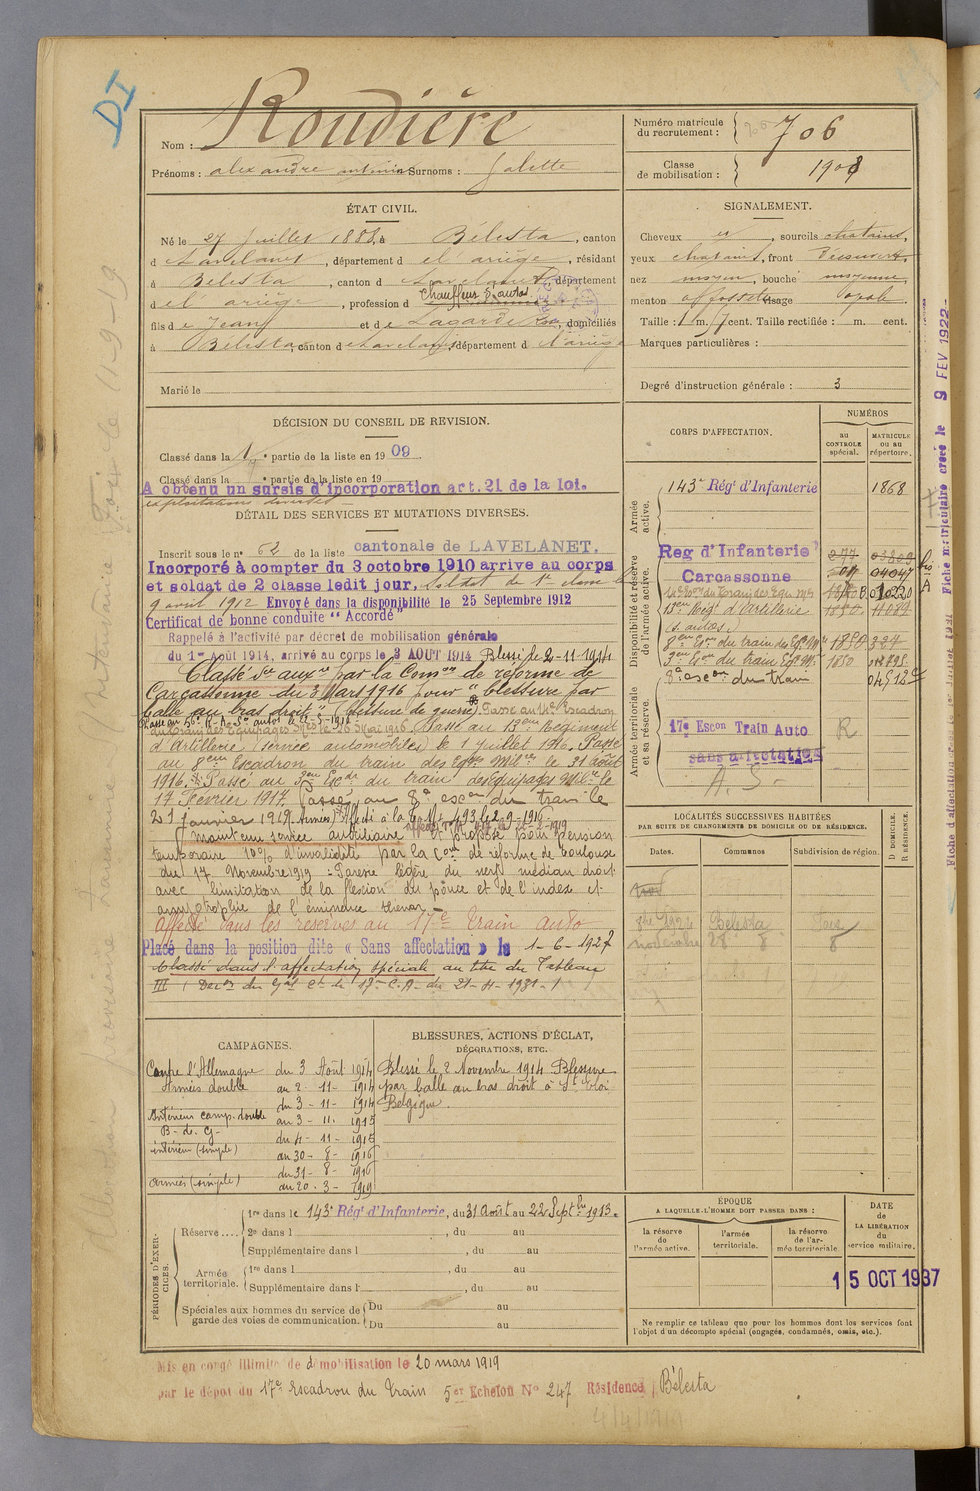 DI
Nom : Roudière
Prénoms : alexandre antonin Surnoms : Galette
Numéro matricule du recrutement : 706
Classe de mobilisation : 1908
ÉTAT CIVIL.
Né le 27 Juillet 1888, à Bélesta, canton
d Lavelanet, département d el' ariège, résidant
à Bélesta, canton d Lavelanet, département
d el' ariège, profession d Chauffeur d'autos
fils de Jean et de Lagarde, domiciliés
à Bélesta, canton d Lavelanet, département d l'ariège
Marié le
SIGNALEMENT.
Cheveux, sourcils chatains,
yeux chatains, front découvert,
nez moyen, bouche moyenne
menton à fossette visage ovale
Taille : 1 m. 7 cent. Taille rectifiée : m. cent.
Marques particulières :
Degré d'instruction générale : 3
DÉCISION DU CONSEIL DE REVISION.
Classé dans la 1 re partie de la liste en 1909.
Classé dans la e partie de la liste en 19
A obtenu un sursis d'incorporation art. 21 de la loi.
exploitations diverses
DÉTAIL DES SERVICES ET MUTATIONS DIVERSES.
Inscrit sous le n° 62 de la liste cantonale de LAVELANET.
Incorporé à compter du 3 octobre 1910 arrive au corps
et soldat de 2 classe ledit jour. Soldat de 1e classe le
9 avril 1912 Envoyé dans la disponibilité le 25 Septembre 1912
Certificat de bonne conduite "Accordé"
Rappelé à l'activité par décret de mobilisation générale
du 1er Août 1914, arrivé au corps le 3 AOUT 1914 Blessé le 2-11-1914
Classé Sce auxre par la Comon de réforme de
Carcassonne du 3 Mars 1916 pour "blessure par
balle au bras droit" (blessure de guerre) Passé au 14e Escadron
Passé au 56e R.A. Sce autos le 22-5-1916
du train des Équipages Mres le 26 Mai 1916. Passé au 13eme Régiment
d'Artillerie (service automobiles) le 1 juillet 1916. Passé
au 8eme Escadron du train des Eqges Milres le 31 août
1916. Passé au 3eme Escdr du train des Equipages Milre le
17 Février 1917. Passé au 8e escon du train le
21 janvier 1919. Armées, Affecté à la T.M. 493 le 2-9-1916
Maintenu service auxiliaire et proposé pour pension
temporaire 10% d'invalidité par la Con de réforme de Toulouse
du 17 Novembre 1919 : Parésie légère du nerf médian droit
avec limitation de la flexion du pouce et de l'index et
amyotrophie de l'éminence thénar -
Affecté dans les réserves au 17e train auto
Placé dans la position dite « Sans affectation » le 1-6-1927
Classé dans l'affectation spéciale au titre du Tableau
III (Decon du Gal Ct le 17e C.A. du 21-4-1931
CORPS D'AFFECTATION.
NUMÉROS
au CONTROLE spécial.
MATRICULE OU AU répertoire.
Armée active.
143e Régt d'Infanterie 1868
Disponibilité et réserve de l'armée active.
Reg d'Infanterie 277 03809
Carcassonne 04047
13em Régt d'Artillerie 1850 11089
(s. autos.)
8eme Eson du train des Eq. Mre 1850 327
3eme Eson du train Eq. Mre 1850
8e escon du train 04512
Armée territoriale et sa réserve.
17e Escon Train Auto R
sans affectation
A. S-
LOCALITÉS SUCCESSIVES HABITÉES
PAR SUITE DE CHANGEMENTS DE DOMICILE OU DE RÉSIDENCE.
Dates. Communes Subdivision de région. D DOMICILE. R RÉSIDENCE.
Bélesta Foix
CAMPAGNES.
Contre l'Allemagne du 3 Août 1914
Armées double au 2-11-1914
du 3-11-1914
Intérieur camp. double au 3-11-1915
B. de G-
du 4-11-1915
intérieur (simple) au 30-8-1916
du 31-8-1916
armées (simple) au 20-3-1919
BLESSURES, ACTIONS D'ÉCLAT, DÉCORATIONS, ETC.
Blessé le 2 Novembre 1914 Blessure
par balle au bras droit à St Eloi
Belgique.
PÉRIODES D'EXERCICES.
Réserve .... 1re dans le 143e Régt d'Infanterie, du 31 Août au 22 Septbre 1913.
2e dans l , du au
Supplémentaire dans l , du au
Armée territoriale. 1re dans l , du au
Supplémentaire dans l' , du au
Spéciales aux hommes du service de garde des voies de communication. Du au
Du au
ÉPOQUE
A LAQUELLE L'HOMME DOIT PASSER DANS :
la réserve de l'armée active.
l'armée territoriale.
la réserve de l'armée territoriale.
DATE de LA LIBÉRATION du service militaire.
15 OCT 1937
Ne remplir ce tableau que pour les hommes dont les services font
l'objet d'un décompte spécial (engagés, condamnés, omis, etc.).
Mis en congé illimité de démobilisation le 20 mars 1919
par le dépot du 17e Escadron du Train 5er Echelon N° 247 Résidence Bélesta
Fiche matriculaire créée le 9 FEV 1922